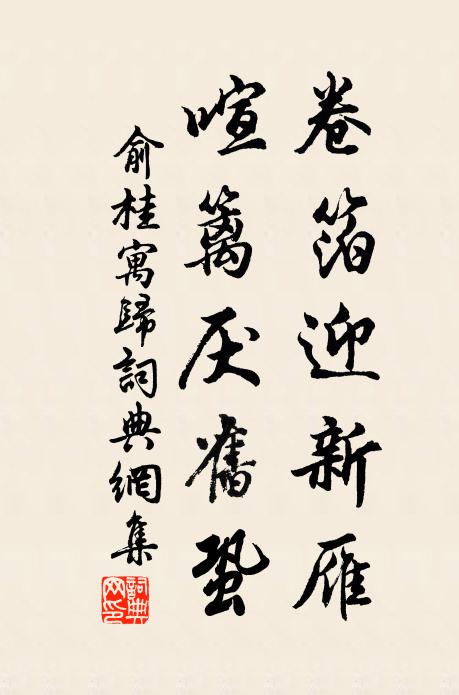 卷箔迎新雁
喧篱厌舊蛩
俞桂寓歸詞典網集
詞典网印